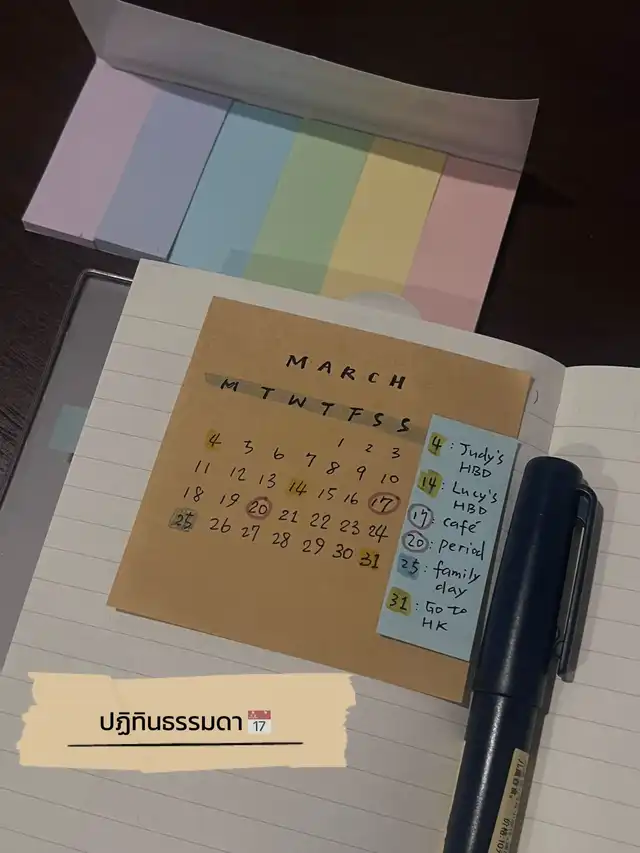 MARCH
M T W T F S S
1 2 3
4 5 6 7 8 9 10
11 12 13 14 15 16 17
18 19 20 21 22 23 24
25 26 27 28 29 30 31
4 : Judy's
HBD
14 : Lucy's
HBD
17 : café
20 : period
25 : family
day
31 : Go to
HK
ปฏิทินธรรมดา 17